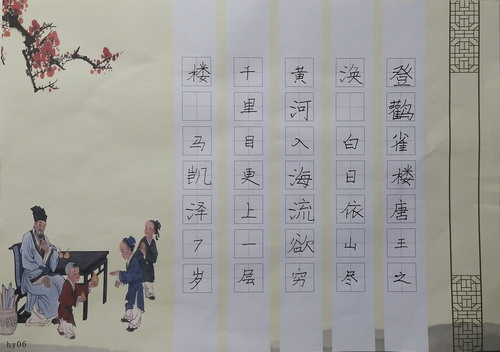 登鹳雀楼唐王之
涣 白日依山尽
黄河入海流欲穷
千里目更上一层
楼 马凯泽7岁
hy06